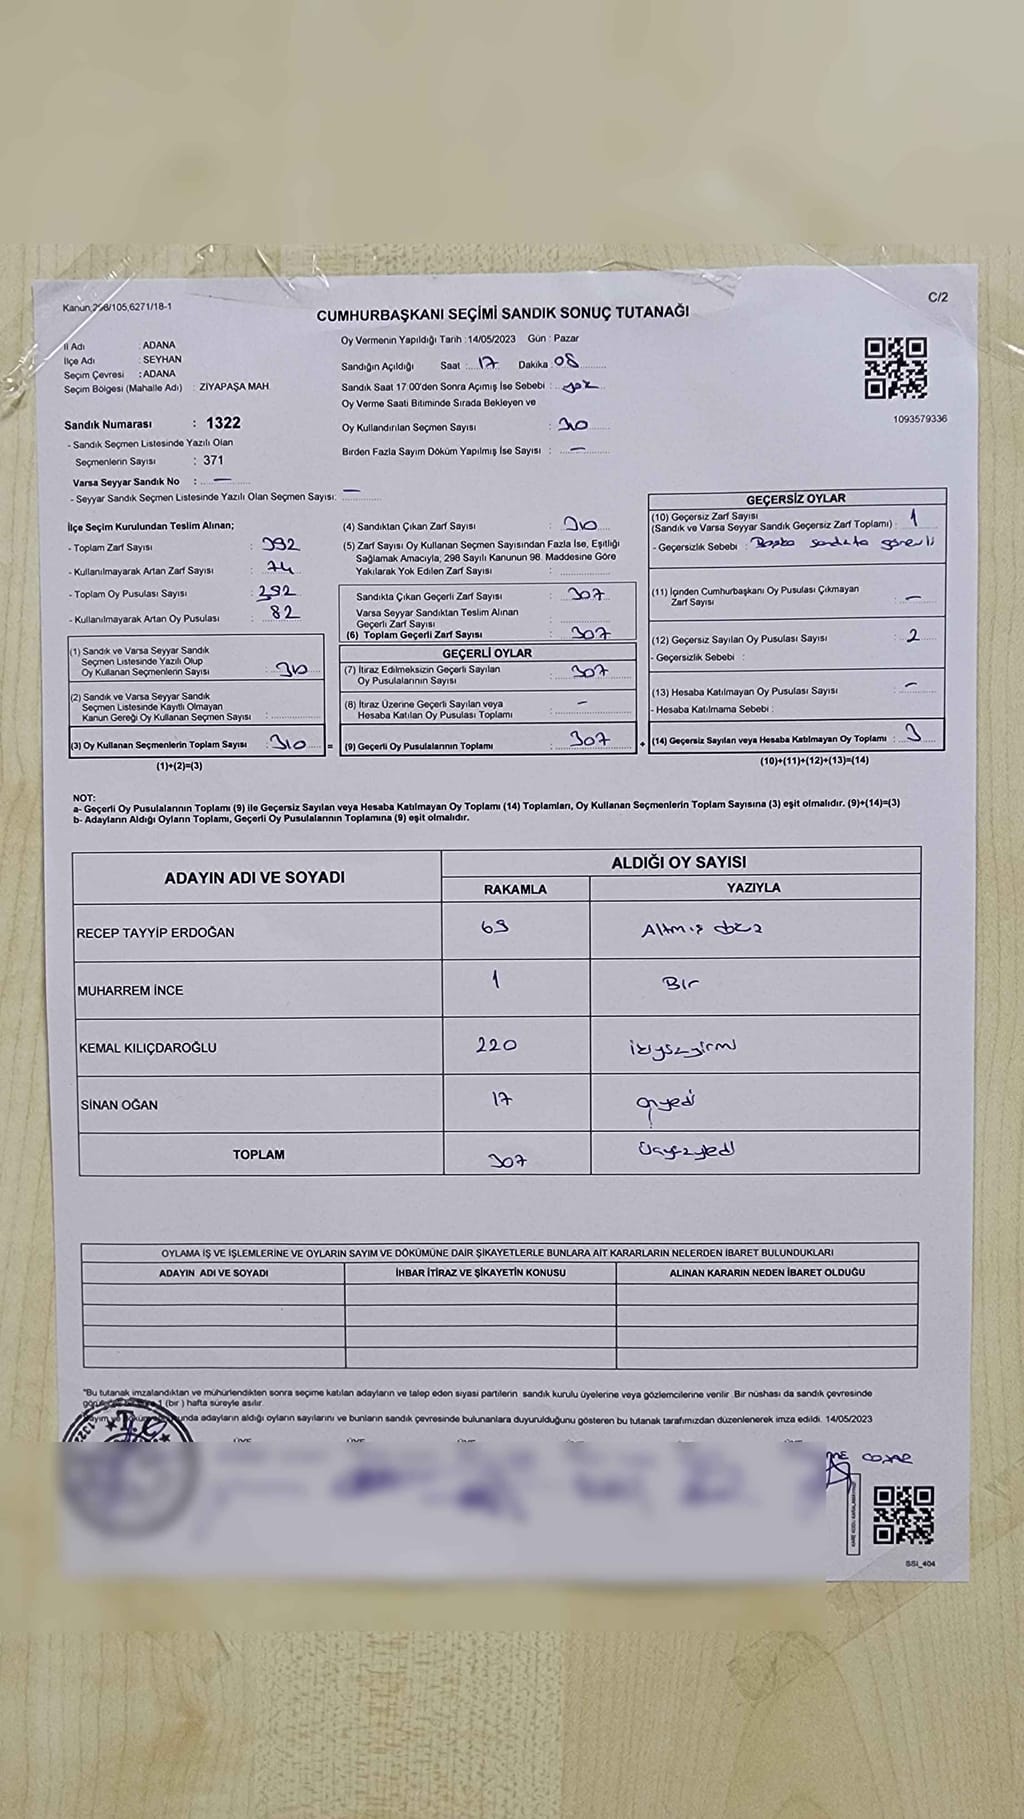 Kanun 298/105,6271/18-1
C/2
CUMHURBAŞKANI SEÇİMİ SANDIK SONUÇ TUTANAĞI
İl Adı ADANA
İlçe Adı : SEYHAN
Seçim Çevresi : ADANA
Seçim Bölgesi (Mahalle Adı) : ZİYAPAŞA MAH.
Sandık Numarası : 1322
- Sandık Seçmen Listesinde Yazılı Olan
Seçmenlerin Sayısı : 371
Varsa Seyyar Sandık No : —
- Seyyar Sandık Seçmen Listesinde Yazılı Olan Seçmen Sayısı: —
Oy Vermenin Yapıldığı Tarih : 14/05/2023 Gün : Pazar
Sandığın Açıldığı Saat : 17 Dakika : 08
Sandık Saat 17.00'den Sonra Açılmış İse Sebebi : yok
Oy Verme Saati Bitiminde Sırada Bekleyen ve
Oy Kullandırılan Seçmen Sayısı : 310
Birden Fazla Sayım Döküm Yapılmış İse Sayısı : —
1093579336
İlçe Seçim Kurulundan Teslim Alınan;
- Toplam Zarf Sayısı : 392
- Kullanılmayarak Artan Zarf Sayısı : 74
- Toplam Oy Pusulası Sayısı : 392
- Kullanılmayarak Artan Oy Pusulası : 82
(1) Sandık ve Varsa Seyyar Sandık
Seçmen Listesinde Yazılı Olup
Oy Kullanan Seçmenlerin Sayısı : 310
(2) Sandık ve Varsa Seyyar Sandık
Seçmen Listesinde Kayıtlı Olmayan
Kanun Gereği Oy Kullanan Seçmen Sayısı :
(3) Oy Kullanan Seçmenlerin Toplam Sayısı : 310
(1)+(2)=(3)
(4) Sandıktan Çıkan Zarf Sayısı : 310
(5) Zarf Sayısı Oy Kullanan Seçmen Sayısından Fazla İse, Eşitliği
Sağlamak Amacıyla, 298 Sayılı Kanunun 98. Maddesine Göre
Yakılarak Yok Edilen Zarf Sayısı :
Sandıkta Çıkan Geçerli Zarf Sayısı : 307
Varsa Seyyar Sandıktan Teslim Alınan
Geçerli Zarf Sayısı :
(6) Toplam Geçerli Zarf Sayısı : 307
GEÇERLİ OYLAR
(7) İtiraz Edilmeksizin Geçerli Sayılan
Oy Pusulalarının Sayısı : 307
(8) İtiraz Üzerine Geçerli Sayılan veya
Hesaba Katılan Oy Pusulası Toplamı : —
= (9) Geçerli Oy Pusulalarının Toplamı : 307 +
GEÇERSİZ OYLAR
(10) Geçersiz Zarf Sayısı
(Sandık ve Varsa Seyyar Sandık Geçersiz Zarf Toplamı) : 1
- Geçersizlik Sebebi : Başka sandıkta görevli
(11) İçinden Cumhurbaşkanı Oy Pusulası Çıkmayan
Zarf Sayısı : —
(12) Geçersiz Sayılan Oy Pusulası Sayısı : 2
- Geçersizlik Sebebi :
(13) Hesaba Katılmayan Oy Pusulası Sayısı : —
- Hesaba Katılmama Sebebi :
(14) Geçersiz Sayılan veya Hesaba Katılmayan Oy Toplamı : 3
(10)+(11)+(12)+(13)=(14)
NOT:
a- Geçerli Oy Pusulalarının Toplamı (9) ile Geçersiz Sayılan veya Hesaba Katılmayan Oy Toplamı (14) Toplamları, Oy Kullanan Seçmenlerin Toplam Sayısına (3) eşit olmalıdır. (9)+(14)=(3)
b- Adayların Aldığı Oyların Toplamı, Geçerli Oy Pusulalarının Toplamına (9) eşit olmalıdır.
ADAYIN ADI VE SOYADI ALDIĞI OY SAYISI
RAKAMLA YAZIYLA
RECEP TAYYİP ERDOĞAN 69 Altmış dokuz
MUHARREM İNCE 1 Bir
KEMAL KILIÇDAROĞLU 220 ikiyüzyirmi
SİNAN OĞAN 17 onyedi
TOPLAM 307 üçyüzyedi
OYLAMA İŞ VE İŞLEMLERİNE VE OYLARIN SAYIM VE DÖKÜMÜNE DAİR ŞİKAYETLERLE BUNLARA AİT KARARLARIN NELERDEN İBARET BULUNDUKLARI
ADAYIN ADI VE SOYADI İHBAR İTİRAZ VE ŞİKAYETİN KONUSU ALINAN KARARIN NEDEN İBARET OLDUĞU
*Bu tutanak imzalandıktan ve mühürlendikten sonra seçime katılan adayların ve talep eden siyasi partilerin sandık kurulu üyelerine veya gözlemcilerine verilir. Bir nüshası da sandık çevresinde
1 (bir) hafta süreyle asılır.
adayların aldığı oyların sayılarını ve bunların sandık çevresinde bulunanlara duyurulduğunu gösteren bu tutanak tarafımızdan düzenlenerek imza edildi. 14/05/2023
T.C.
SSI_404